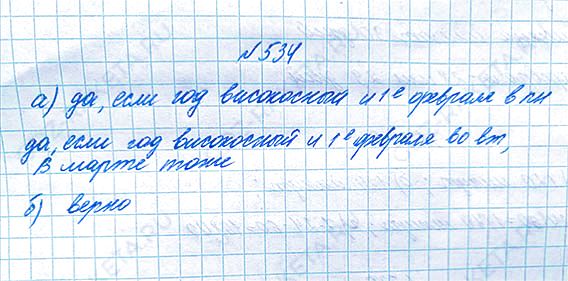 №534
а) да, если год високосный и 1е февраля в пн
да, если год високосный и 1е февраля во вт,
в марте тоже
б) верно